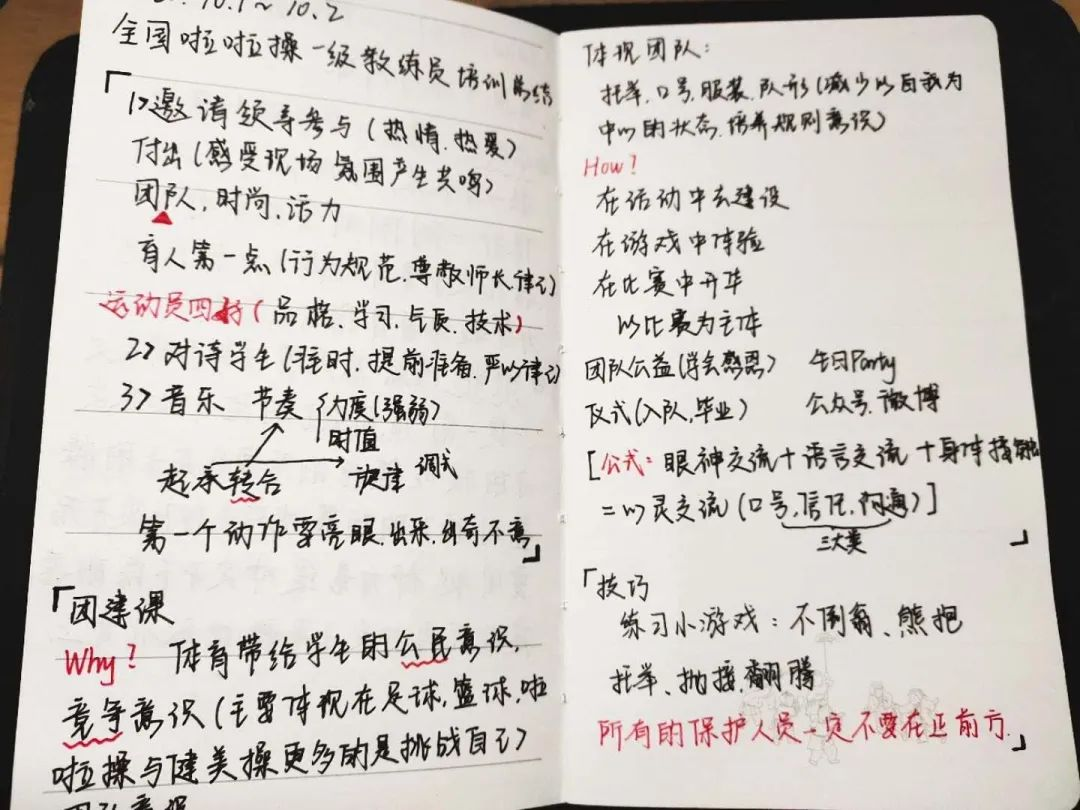 10.1~10.2
全国啦啦操一级教练员培训总结
1>邀请领导参与(热情、热爱)
付出(感受现场氛围产生共鸣)
团队、时尚、活力
育人第一点(行为规范、尊敬师长、律己)
运动员四好(品格、学习、气质、技术)
2>对待学生(准时、提前准备、严以律己)
3>音乐 节奏 力度(强弱)
时值
起承转合 旋律 调式
第一个动作要亮眼、出采、出奇不意
团建课
Why? 体育带给学生的公民意识、
竞争意识(主要体现在足球、篮球、啦
啦操与健美操更多的是挑战自己)
团队意识
体现团队:
托举、口号、服装、队形(减少以自我为
中心的状态、培养规则意识)
How?
在活动中去建设
在游戏中体验
在比赛中升华
以比赛为主体
团队公益(学会感恩) 生日Party
仪式(入队、毕业) 公众号、微博
[公式: 眼神交流+语言交流+身体接触
=心灵交流(口号、信任、沟通)]
三大类
「技巧
练习小游戏: 不倒翁、熊抱
托举、抛接、翻腾
所有的保护人员一定不要在正前方.」